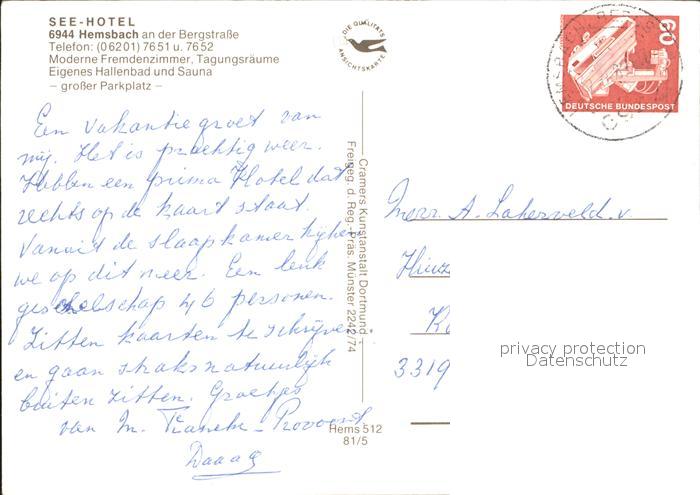 SEE-HOTEL
6944 Hemsbach an der Bergstraße
Telefon: (06201) 7651 u. 7652
Moderne Fremdenzimmer, Tagungsräume
Eigenes Hallenbad und Sauna
– großer Parkplatz –
DIE QUALITÄTS
ANSICHTSKARTE
60
DEUTSCHE BUNDESPOST
Een vakantiegroet van
mij. Het is prachtig weer.
Hebben een prima Hotel dat
rechts op de kaart staat.
Vanuit de slaapkamer kijken
we op dit meer. Een leuk
gezelschap 46 personen.
Zitten kaarten te schrijven
en gaan straks natuurlijk
buiten zitten. Groetjes
van M. Provoost
Daaag
Cramers Kunstanstalt Dortmund
Freigeg. d. Reg.-Präs. Münster 2242/74
Hems 512
81/5
A. v.
3319
privacy protection
Datenschutz